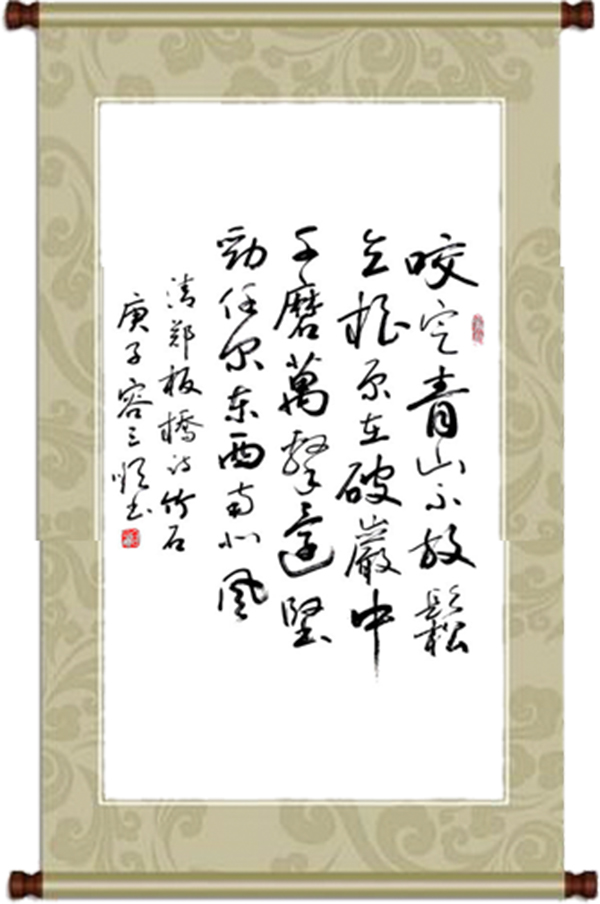 咬定青山不放鬆
立根原在破巖中
千磨萬擊還堅
勁任尔东西南北風
清郑板橋诗竹石
庚子容三顺书